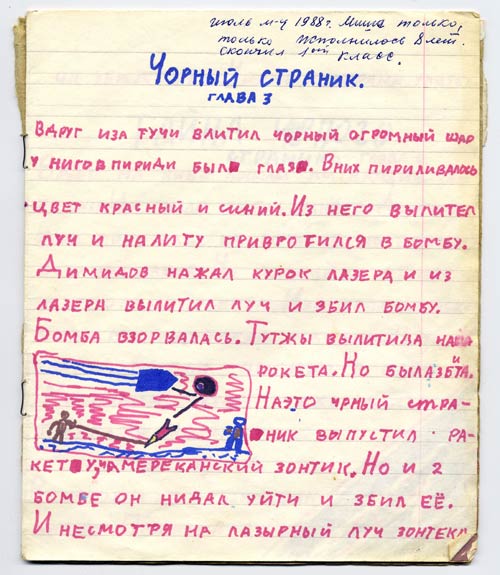 июль м-ц 1988г. Миша только,
только исполнилось 8 лет.
скончил 1ый класс.
ЧОРНЫЙ СТРАНИК.
ГЛАВА 3
ВДРУГ ИЗА ТУЧИ ВЛИТИЛ ЧОРНЫЙ ОГРОМНЫЙ ШАР
У НИГО ВПИРИДИ БЫЛ ГЛАЗ. ВНИХ ПИРИЛИВАЛОСЬ
ЦВЕТ КРАСНЫЙ И СИНИЙ. ИЗ НЕГО ВЫЛИТЕЛ
ЛУЧ И НАЛИТУ ПРИВРОТИЛСЯ В БОМБУ.
ДИМИДОВ НАЖАЛ КУРОК ЛАЗЕРА И ИЗ
ЛАЗЕРА ВЫЛИТИЛ ЛУЧ И ЗБИЛ БОМБУ.
БОМБА ВЗОРВАЛАСЬ. ТУТЖЫ ВЫЛИТИЛА НАША
РОКЕТА. НО БЫЛАЗБИТА.
НАЭТО ЧРНЫЙ СТРА-
НИК ВЫПУСТИЛ РА-
КЕТУ, НА АМЕРЕКАНСКИЙ ЗОНТИК. НО И 2
БОМБЕ ОН НИДАЛ УЙТИ И ЗБИЛ ЕЁ.
И НЕСМОТРЯ НА ЛАЗЫРНЫЙ ЛУЧ ЗОНТЕКА